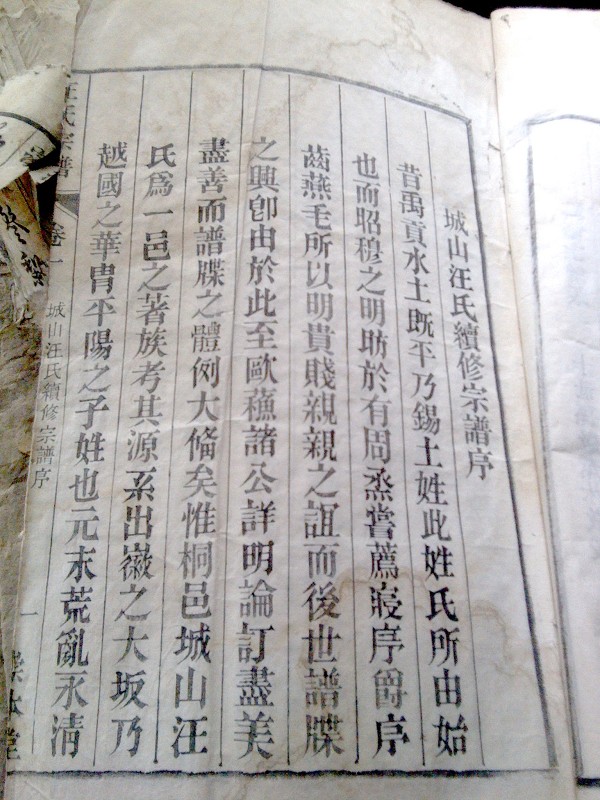 城山汪氏續修宗譜序
昔禹貢水土既平乃錫土姓此姓氏所由始
也而昭穆之明昉於有周烝嘗薦寢序爵序
齒燕毛所以明貴賤親親之誼而後世譜牒
之興卽由於此至歐蘓諸公詳明論訂盡美
盡善而譜牒之體例大備矣惟桐邑城山汪
氏爲一邑之著族考其源系出徽之大坂乃
越國之華胄平陽之子姓也元末荒亂永清
汪氏宗譜
卷一
城山汪氏續修宗譜序
一
本堂